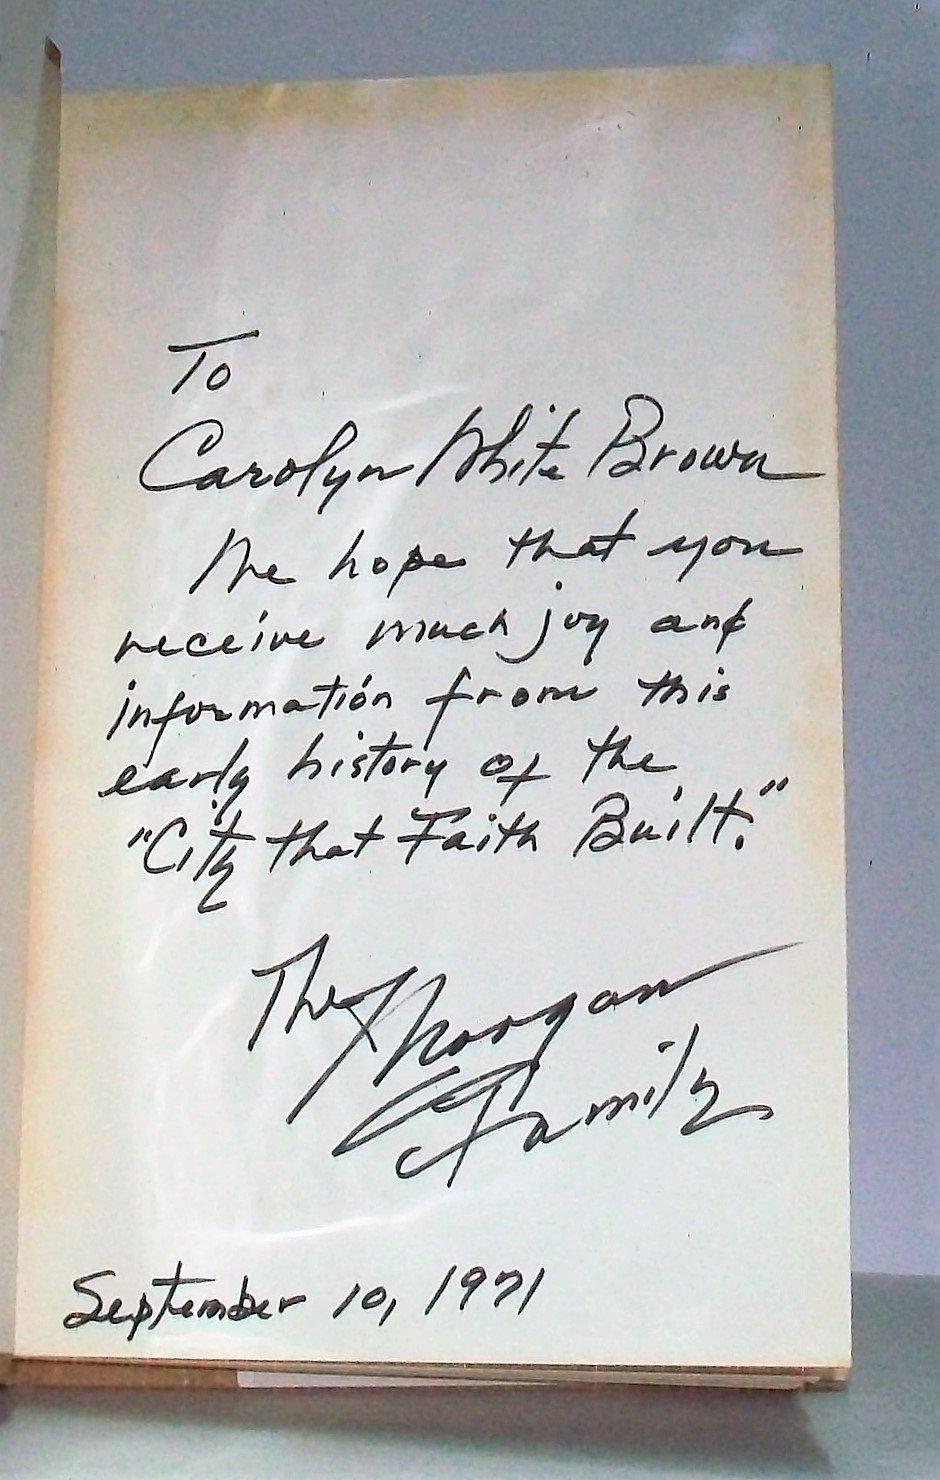 To
Carolyn White Brown
We hope that you
receive much joy and
information from this
early history of the
"City that Faith Built."
The Morgan
Family
September 10, 1971